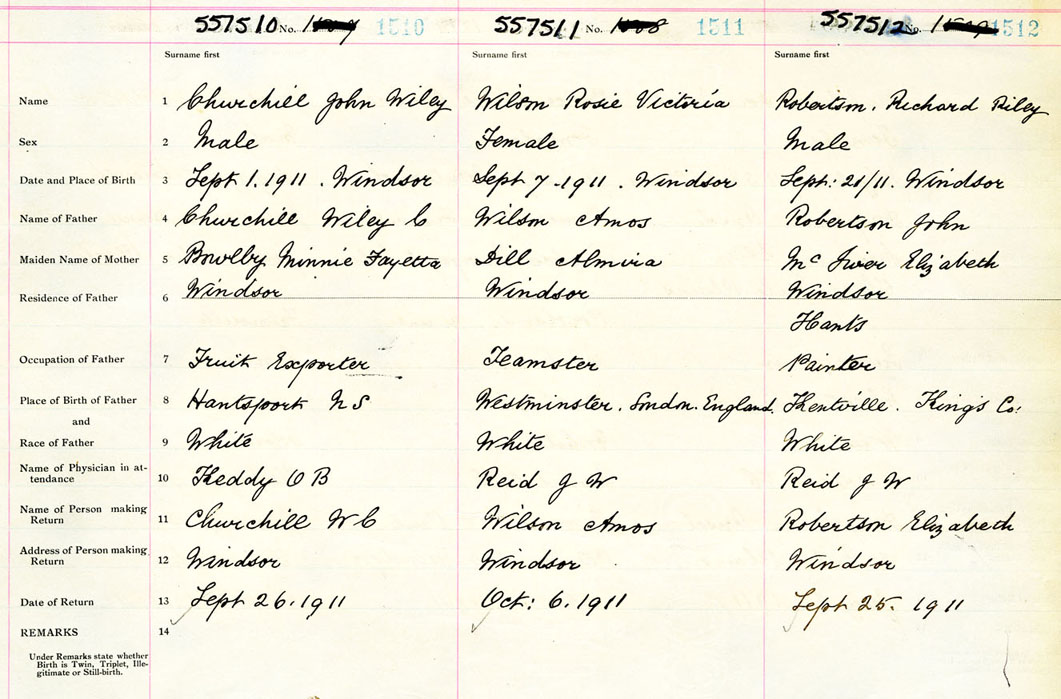 557510 No. 1510 557511 No. 1511 557512 No. 1512
Surname first Surname first Surname first
Name 1 Churchill John Wiley Wilson Rosie Victoria Robertson. Richard Riley
Sex 2 Male Female Male
Date and Place of Birth 3 Sept 1. 1911. Windsor Sept 7-1911. Windsor Sept: 21/11. Windsor
Name of Father 4 Churchill Wiley C Wilson Amos Robertson John
Maiden Name of Mother 5 Bowlby Minnie Fayetta Dill Almira Mc Iver Elizabeth
Residence of Father 6 Windsor Windsor Windsor
Hants
Occupation of Father 7 Fruit Exporter Teamster Painter
Place of Birth of Father 8 Hantsport N S Westminster. London. England. Kentville. Kings Co:
and
Race of Father 9 White White White
Name of Physician in at-
tendance 10 Keddy O B Reid J W Reid J W
Name of Person making
Return 11 Churchill W C Wilson Amos Robertson Elizabeth
Address of Person making
Return 12 Windsor Windsor Windsor
Date of Return 13 Sept 26. 1911 Oct: 6. 1911 Sept 25. 1911
REMARKS 14
Under Remarks state whether
Birth is Twin, Triplet, Ille-
gitimate or Still-birth.